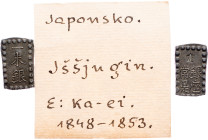 Japonsko.
Iššjugin.
E: Ka-ei.
1848-1853.